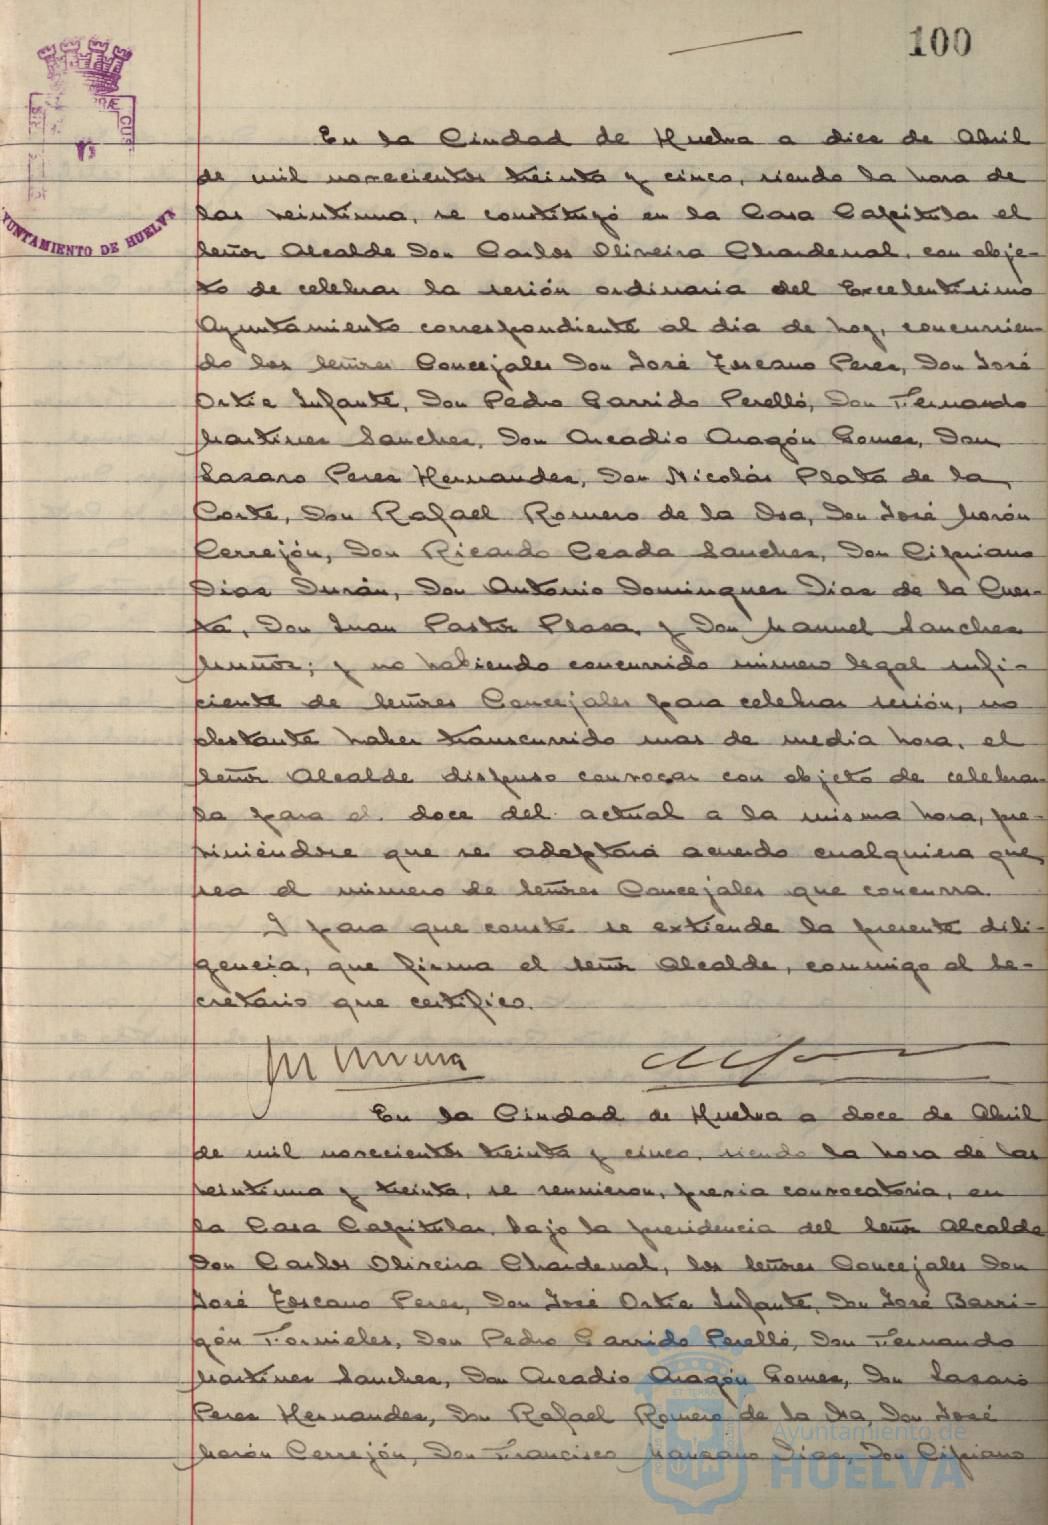 100
En la Ciudad de Huelva a diez de Abril
de mil novecientos treinta y cinco, siendo la hora de
las veintiuna, se constituyó en la Casa Capitular el
Señor Alcalde Don Carlos Oliveira Chardenal, con obje-
to de celebrar la sesión ordinaria del Excelentísimo
Ayuntamiento correspondiente al dia de hoy, concurrien-
do los Señores Concejales Don José Toscano Perez, Don José
Ortiz Infante, Don Pedro Garrido Perelló, Don Fernando
Martinez Sanchez, Don Arcadio Aragón Gomez, Don
Lazaro Perez Hernandez, Don Nicolás Plata de la
Corte, Don Rafael Romero de la Osa, Don José Morón
Cerrejón, Don Ricardo Ceada Sanchez, Don Cipriano
Diaz Durán, Don Antonio Dominguez Diaz de la Cues-
ta, Don Juan Pastor Plaza, y Don Manuel Sanchez
Muñoz; y no habiendo concurrido número legal sufi-
ciente de Señores Concejales para celebrar sesión, no
obstante haber transcurrido mas de media hora, el
Señor Alcalde dispuso convocar con objeto de celebrar-
la para el doce del actual a la misma hora, pre-
viniéndose que se adoptará acuerdo cualquiera que
sea el número de Señores Concejales que concurra.
Y para que conste se extiende la presente dili-
gencia, que firma el Señor Alcalde, conmigo el Se-
cretario que certifico.
En la Ciudad de Huelva a doce de Abril
de mil novecientos treinta y cinco, siendo la hora de las
veintiuna y treinta, se reunieron, previa convocatoria, en
la Casa Capitular, bajo la presidencia del Señor Alcalde
Don Carlos Oliveira Chardenal, los Señores Concejales Don
José Toscano Perez, Don José Ortiz Infante, Don José Barri-
gón Fornieles, Don Pedro Garrido Perelló, Don Fernando
Martinez Sanchez, Don Arcadio Aragón Gomez, Don Lazaro
Perez Hernandez, Don Rafael Romero de la Osa, Don José
Morón Cerrejón, Don Francisco Manzano Diaz, Don Cipriano
AYUNTAMIENTO DE HUELVA
Ayuntamiento de
HUELVA